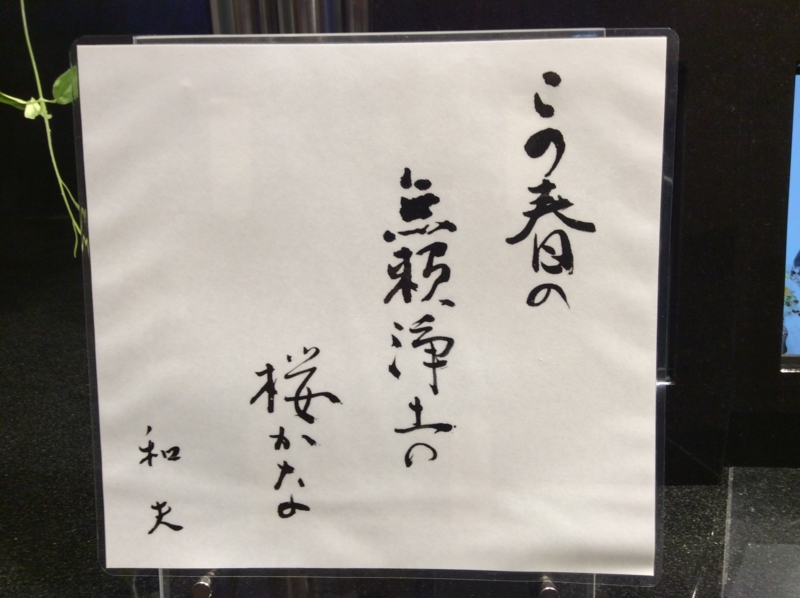 この春の
無頼浄土の
桜かなよ
和夫